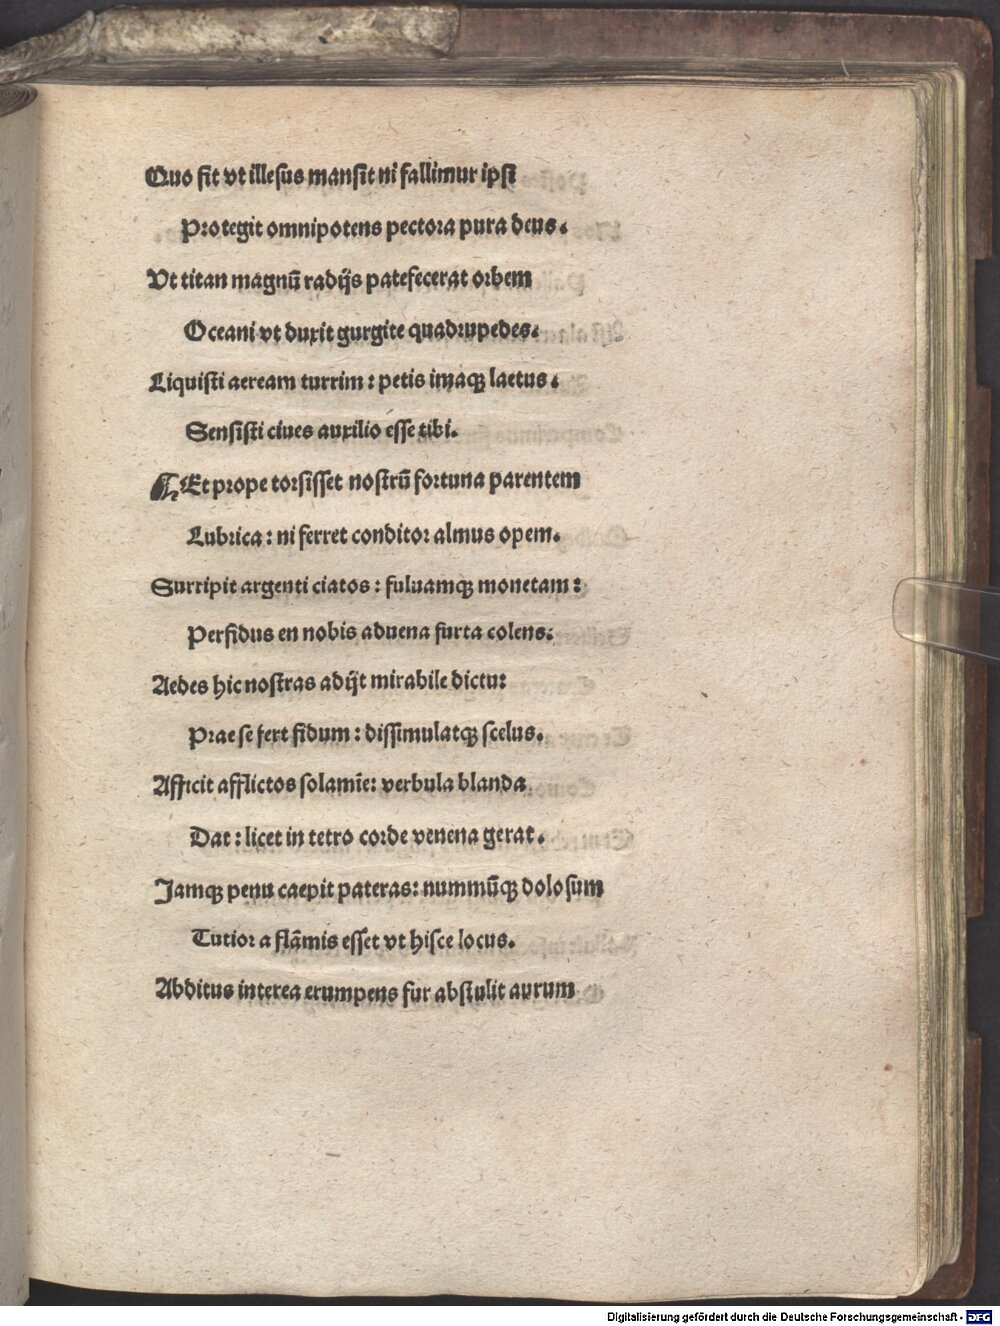 Quo fit vt illesus mansit ni fallimur ipsi
Protegit omnipotens pectora pura deus.
Vt titan magnū radijs patefecerat orbem
Oceani vt duxit gurgite quadrupedes.
Liquisti aeream turrim: petis imaqꝫ laetus.
Sensisti ciues auxilio esse tibi.
¶ Et prope torsisset nostrū fortuna parentem
Lubrica: ni ferret conditor almus opem.
Surripit argenti ciatos: fuluamqꝫ monetam:
Perfidus en nobis aduena furta colens.
Aedes hic nostras adijt mirabile dictu:
Prae se fert fidum: dissimulatqꝫ scelus.
Afficit afflictos solamīe: verbula blanda
Dat: licet in tetro corde venena gerat.
Jamqꝫ penu caepit pateras: nummūqꝫ dolosum
Tutior a flāmis esset vt hisce locus.
Abditus interea erumpens fur abstulit aurum
Digitalisierung gefördert durch die Deutsche Forschungsgemeinschaft - DFG